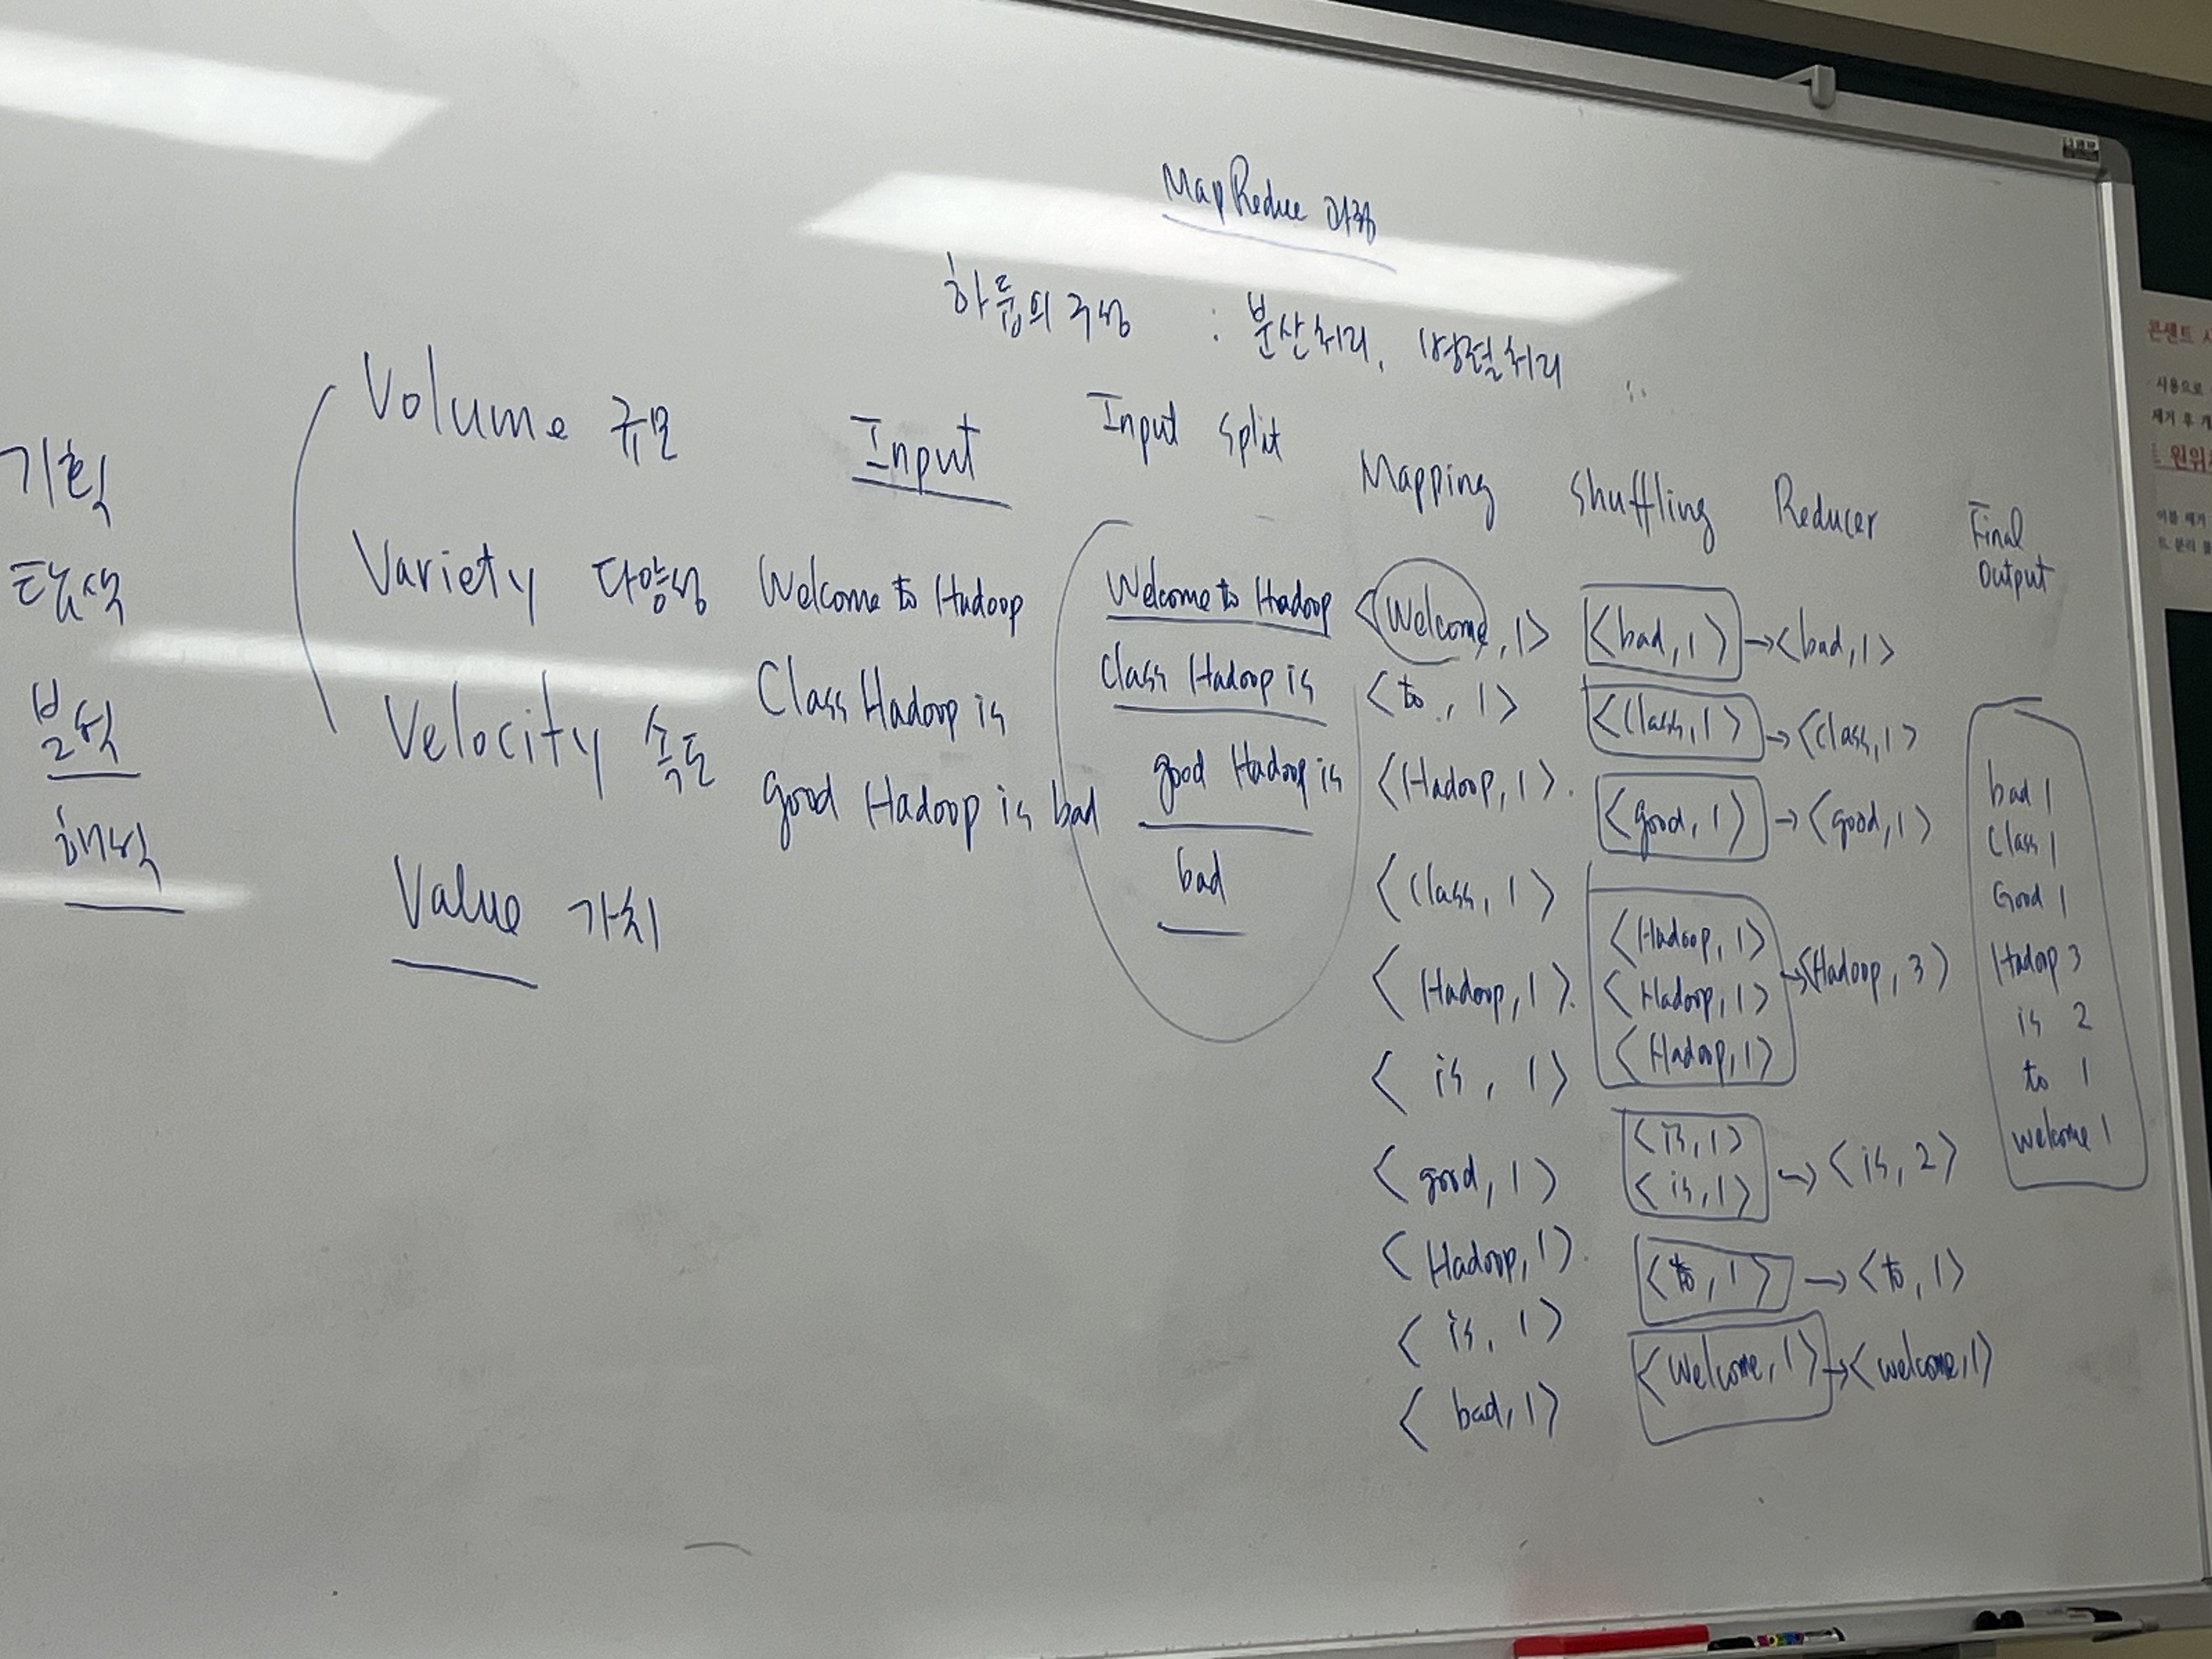 MapReduce 과정
하둡의 구성 : 분산처리, 병렬처리
기획
탐색
분석
해석
Volume 규모
Variety 다양성
Velocity 속도
Value 가치
Input
Welcome to Hadoop
Class Hadoop is
good Hadoop is bad
Input Split
Welcome to Hadoop
Class Hadoop is
good Hadoop is
bad
Mapping
<Welcome, 1>
<to, 1>
<Hadoop, 1>
<Class, 1>
<Hadoop, 1>
<is, 1>
<good, 1>
<Hadoop, 1>
<is, 1>
<bad, 1>
Shuffling
<bad, 1>
<Class, 1>
<good, 1>
<Hadoop, 1>
<Hadoop, 1>
<Hadoop, 1>
<is, 1>
<is, 1>
<to, 1>
<Welcome, 1>
Reducer
→<bad, 1>
→<Class, 1>
→<good, 1>
→<Hadoop, 3>
→<is, 2>
→<to, 1>
→<welcome, 1>
Final
Output
bad 1
Class 1
Good 1
Hadoop 3
is 2
to 1
welcome 1
콘센트
사용으로
제거 후
원위